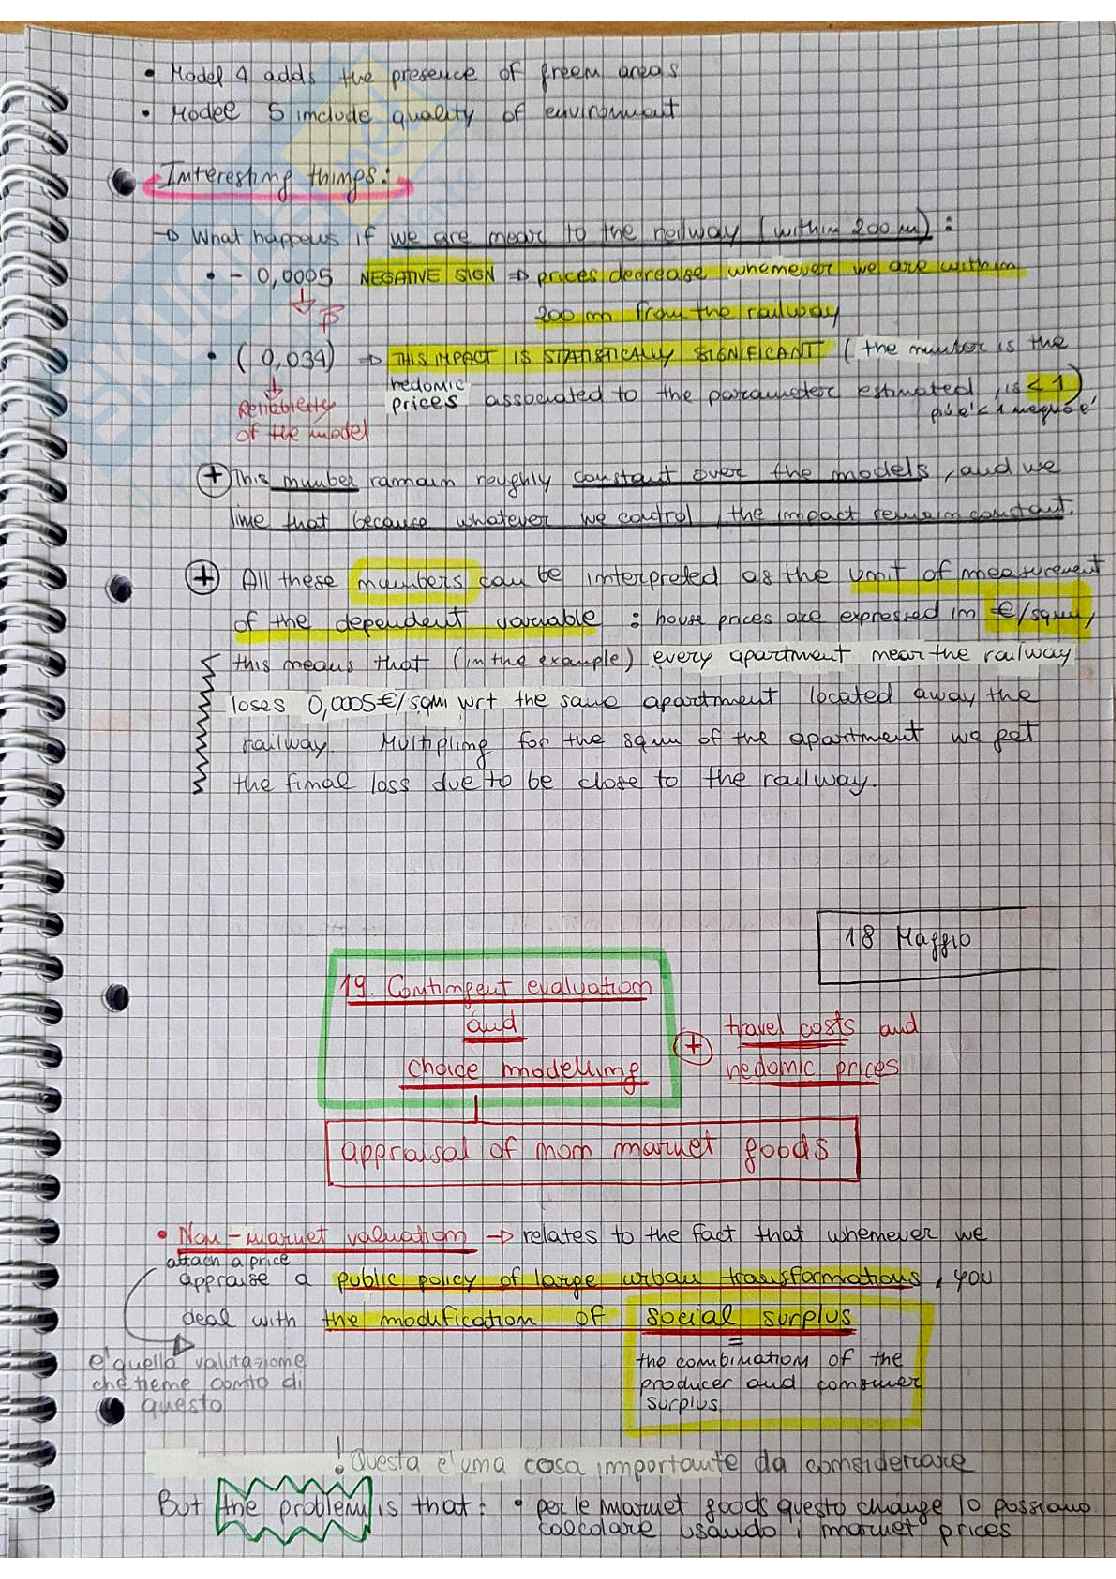 • Model 4 adds the presence of green areas
• Model 5 include quality of environment
Interesting things:
→ What happens if we are near to the railway (within 200 m):
• - 0,0005 NEGATIVE SIGN ⇒ prices decrease whenever we are within
200 m from the railway
β
• (0,034) ⇒ THIS IMPACT IS STATISTICALLY SIGNIFICANT (the number is the
hedonic
prices associated to the parameter estimated, is < 1)
Reliability
of the model
più è < 1 meglio è
+ This number ramain roughly constant over the models, and we
like that because whatever we control, the impact remain constant.
+ All these numbers can be interpreted as the unit of measurement
of the dependent variable : house prices are expressed in €/sqm,
this means that (in the example) every apartment near the railway
loses 0,0005€/sqm wrt the same apartment located away the
railway. Multipling for the sqm of the apartment we get
the final loss due to be close to the railway.
18 Maggio
19. Contingent evaluation
and
choice modelling
+ travel costs and
hedonic prices
appraisal of non market goods
• Non-market valuation → relates to the fact that whenever we
attach a price
appraise a public policy of large urban transformations, you
deal with the modification of social surplus
=
the combination of the
producer and consumer
surplus
e' quella valutazione
che tiene conto di
questo
! Questa e' una cosa importante da considerare
But the problem is that: • per le market goods questo change lo possiamo
calcolare usando i market prices